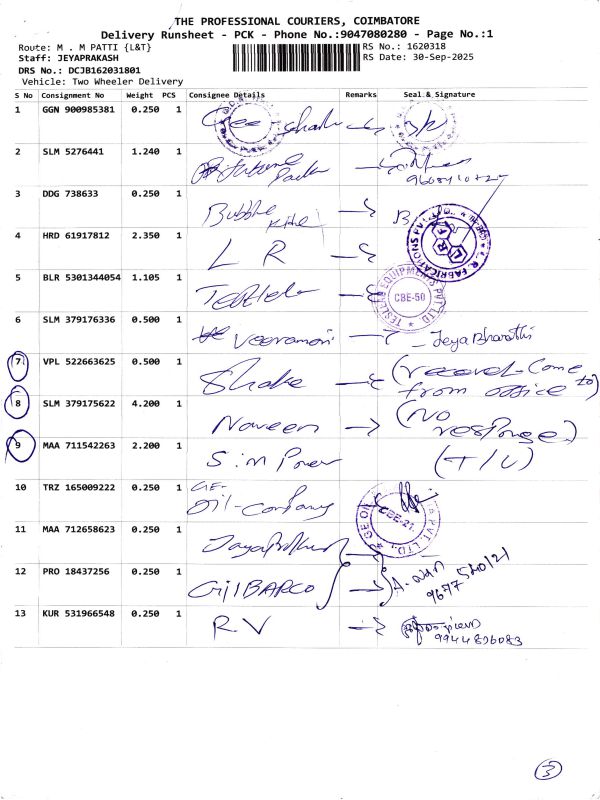 THE PROFESSIONAL COURIERS, COIMBATORE
Delivery Runsheet - PCK - Phone No.:9047080280 - Page No.:1
Route: M . M PATTI {L&T}
RS No.: 1620318
Staff: JEYAPRAKASH
RS Date: 30-Sep-2025
DRS No.: DCJB162031801
Vehicle: Two Wheeler Delivery
S No Consignment No Weight PCS Consignee Details Remarks Seal & Signature
1 GGN 900985381 0.250 1
2 SLM 5276441 1.240 1 Future
3 DDG 738633 0.250 1 Bubble
4 HRD 61917812 2.350 1 L R
FABRICATIONS
5 BLR 5301344054 1.105 1
EQUIPMENTS PVT LTD
CBE-50
6 SLM 379176336 0.500 1 Veeramani Jeya Bharathi
7 VPL 522663625 0.500 1 Shake (record come to
from office)
8 SLM 379175622 4.200 1 Naveen (NO
response)
9 MAA 711542263 2.200 1 S.M Power (T/U)
10 TRZ 165009222 0.250 1 GE-
Oil-Company
CBE-21
PVT. LTD.
11 MAA 712658623 0.250 1
12 PRO 18437256 0.250 1 GilBARCO
9677 540121
13 KUR 531966548 0.250 1 R V
9944826083
3